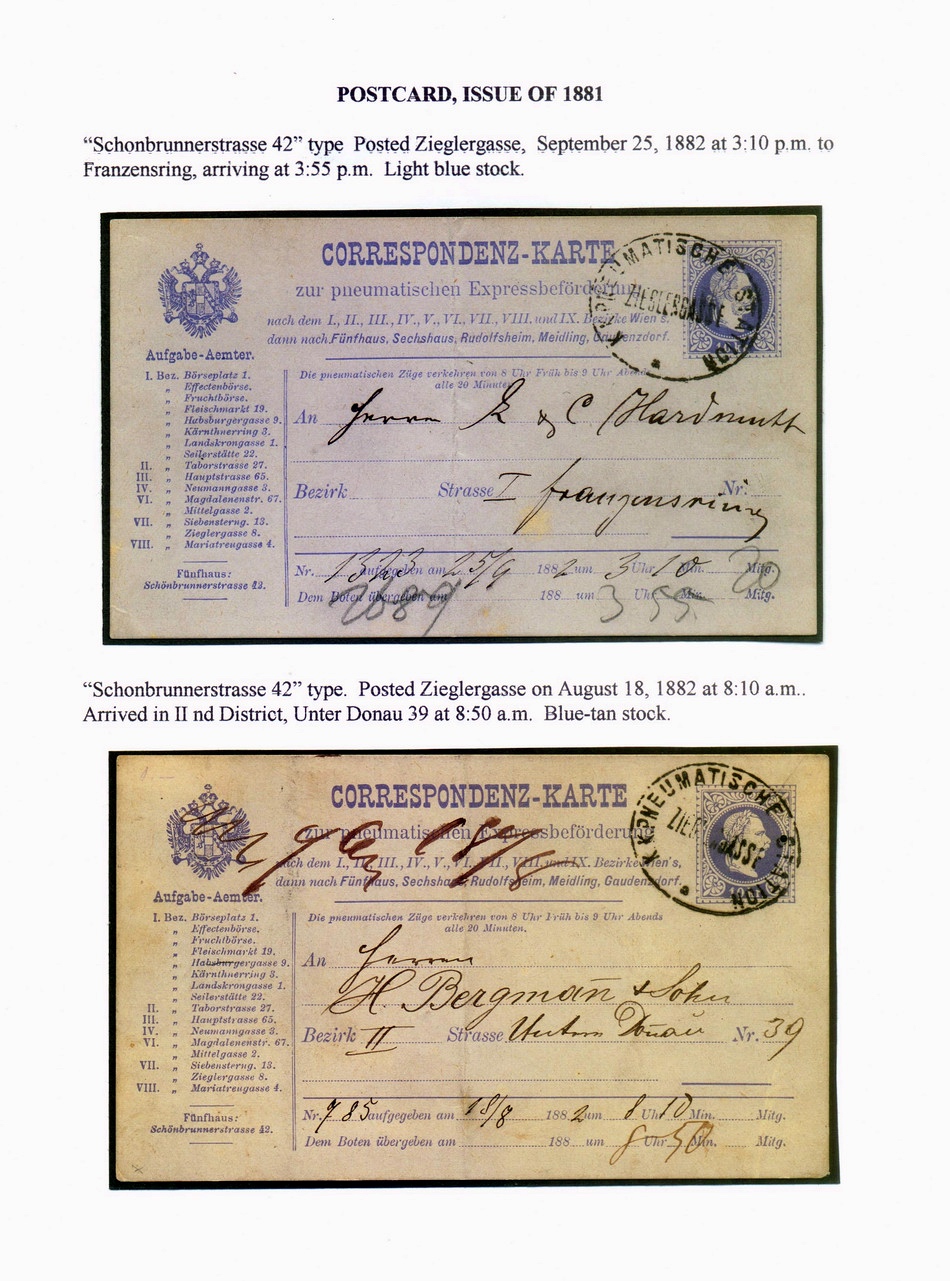 POSTCARD, ISSUE OF 1881
“Schonbrunnerstrasse 42” type Posted Zieglergasse, September 25, 1882 at 3:10 p.m. to
Franzensring, arriving at 3:55 p.m. Light blue stock.
CORRESPONDENZ-KARTE
zur pneumatischen Expressbeförderung
nach dem I., II., III., IV., V., VI., VII., VIII. und IX. Bezirke Wien's,
dann nach Fünfhaus, Sechshaus, Rudolfsheim, Meidling, Gaudenzdorf.
K.K. PNEUMATISCHE STATION
ZIEGLERGASSE
Aufgabe-Aemter.
I. Bez. Börseplatz 1.
„ Effectenbörse.
„ Fruchtbörse.
„ Fleischmarkt 19.
„ Habsburgergasse 9.
„ Kärnthnerring 3.
„ Landskrongasse 1.
„ Seilerstätte 22.
II. „ Taborstrasse 27.
III. „ Hauptstrasse 65.
IV. „ Neumanngasse 3.
VI. „ Magdalenenstr. 67.
„ Mittelgasse 2.
VII. „ Siebensterng. 13.
„ Zieglergasse 8.
VIII. „ Mariatreugasse 4.
Fünfhaus:
Schönbrunnerstrasse 42.
Die pneumatischen Züge verkehren von 8 Uhr Früh bis 9 Uhr Abends
alle 20 Minuten.
An Herrn L & C Hardmuth
Bezirk Strasse I Franzensring Nr.
Nr. 1363 aufgegeben am 25/9 1882 um 3 Uhr 10 Min. Mitg.
20
Dem Boten übergeben am 188 um 3 Uhr 55 Min. Mitg.
2689
“Schonbrunnerstrasse 42” type. Posted Zieglergasse on August 18, 1882 at 8:10 a.m..
Arrived in II nd District, Unter Donau 39 at 8:50 a.m. Blue-tan stock.
CORRESPONDENZ-KARTE
zur pneumatischen Expressbeförderung
nach dem I., II., III., IV., V., VI., VII., VIII. und IX. Bezirke Wien's,
dann nach Fünfhaus, Sechshaus, Rudolfsheim, Meidling, Gaudenzdorf.
K.K. PNEUMATISCHE STATION
ZIEGLERGASSE
Aufgabe-Aemter.
I. Bez. Börseplatz 1.
„ Effectenbörse.
„ Fruchtbörse.
„ Fleischmarkt 19.
„ Habsburgergasse 9.
„ Kärnthnerring 3.
„ Landskrongasse 1.
„ Seilerstätte 22.
II. „ Taborstrasse 27.
III. „ Hauptstrasse 65.
IV. „ Neumanngasse 3.
VI. „ Magdalenenstr. 67.
„ Mittelgasse 2.
VII. „ Siebensterng. 13.
„ Zieglergasse 8.
VIII. „ Mariatreugasse 4.
Fünfhaus:
Schönbrunnerstrasse 42.
Die pneumatischen Züge verkehren von 8 Uhr Früh bis 9 Uhr Abends
alle 20 Minuten.
An Herren
H. Bergmañ & Sohn
Bezirk II Strasse Untere Donau Nr. 39
Nr. 785 aufgegeben am 18/8 1882 um 8 Uhr 10 Min. Mitg.
Dem Boten übergeben am 188 um 8 Uhr 50 Min. Mitg.